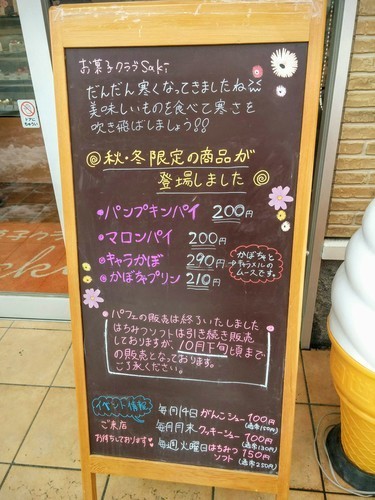 お菓子クラブSaki
だんだん寒くなってきましたね
美味しいものを食べて寒さを
吹き飛ばしましょう!!
◎秋・冬限定の商品が
登場しました◎
・パンプキンパイ 200円
・マロンパイ 200円
・キャラかぼ 290円
・かぼちゃプリン 210円
かぼちゃと
キャラメルの
ムースです。
・パフェの販売は終了いたしました
はちみつソフトは引き続き販売
しておりますが、10月下旬頃まで
の販売となっております。
ご了承ください。
イベント情報
ご来店
お待ちしております♥
毎月19日 がんこシュー 100円
(通常150円)
毎月月末 クッキーシュー 100円
(通常130円)
毎週火曜日 はちみつ 150円
ソフト (通常250円)